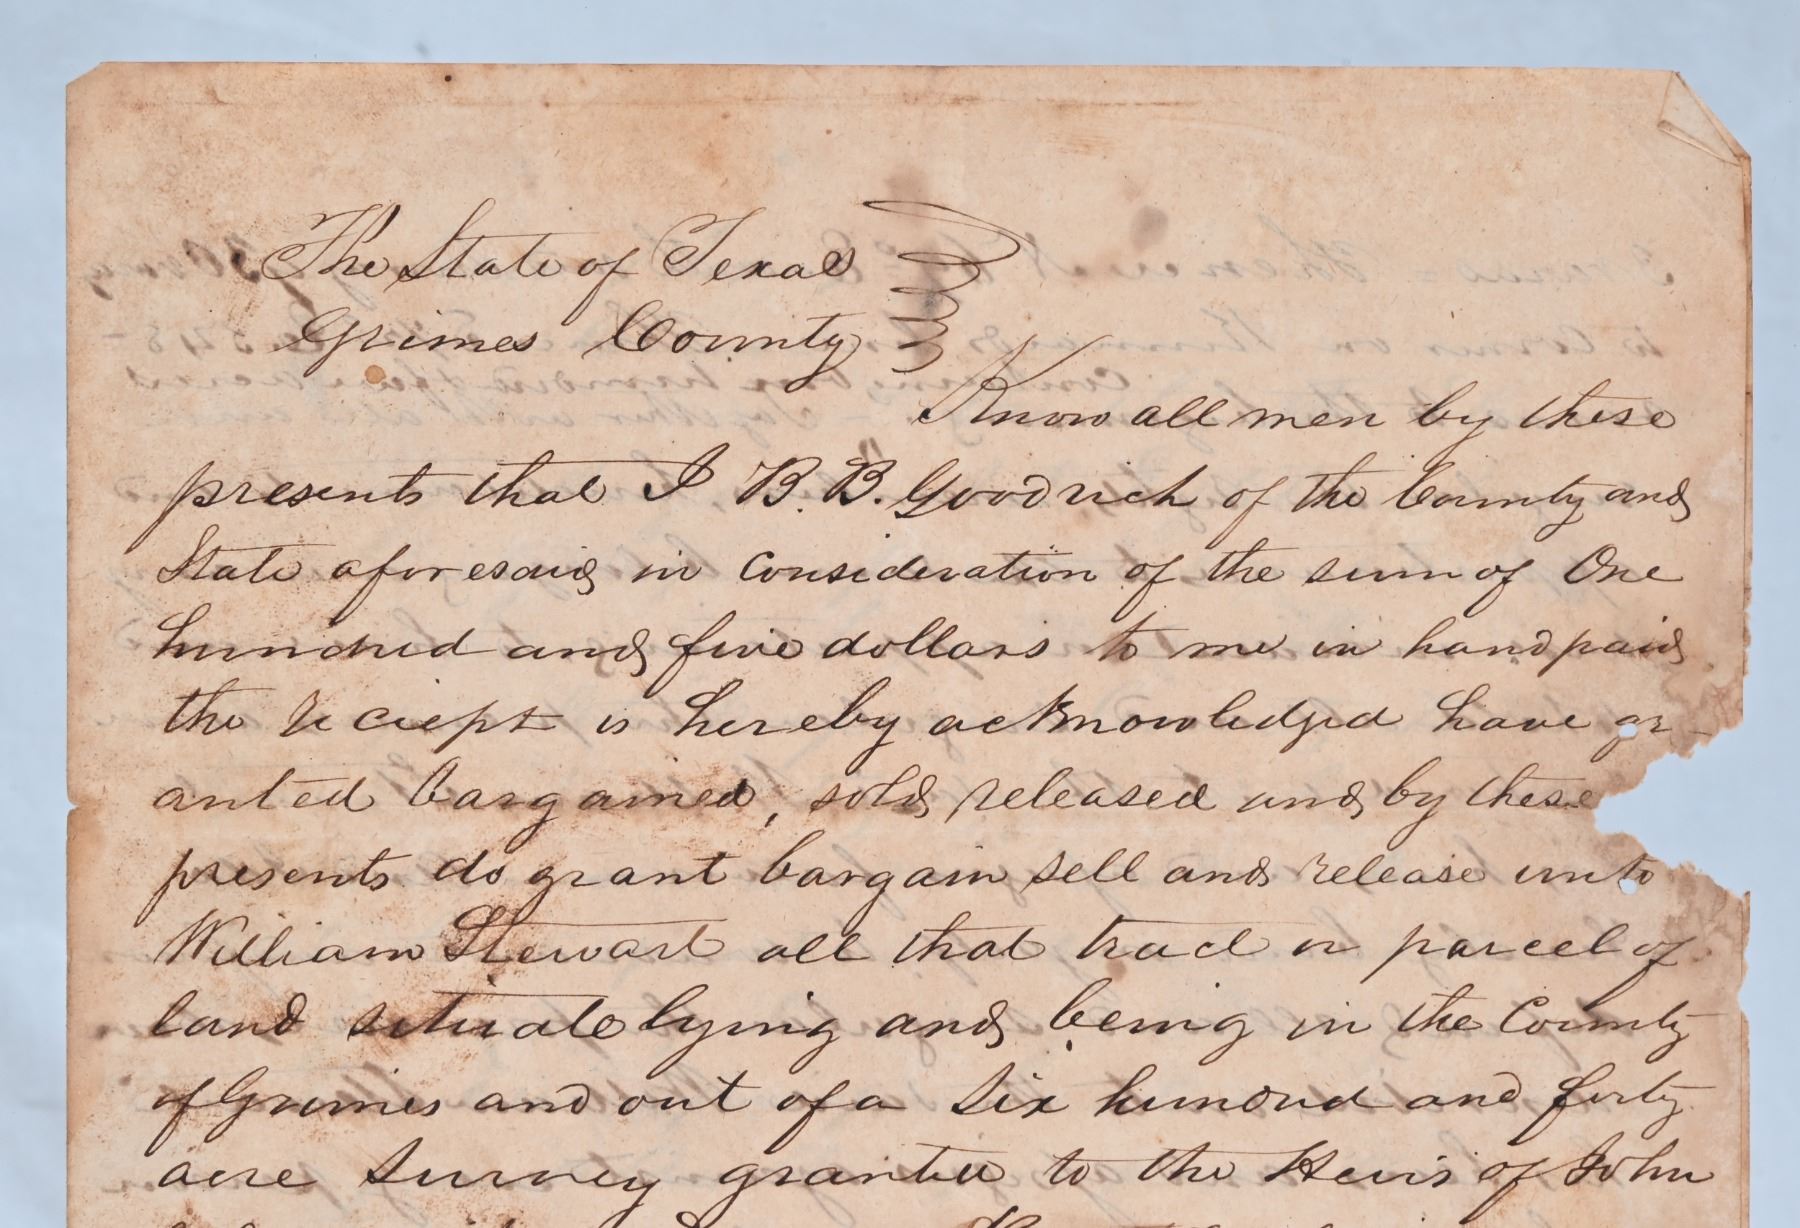 The State of Texas
Grimes County
Know all men by these
presents that I B. B. Goodrich of the County and
State aforesaid in consideration of the sum of One
hundred and five dollars to me in hand paid
the reciept is hereby acknowledged have gr-
anted bargained, sold, released and by these
presents do grant bargain sell and release unto
William Stewart all that tract or parcel of
land situate lying and being in the County
of Grimes and out of a Six hundred and forty
acre Survey granted to the Heirs of John